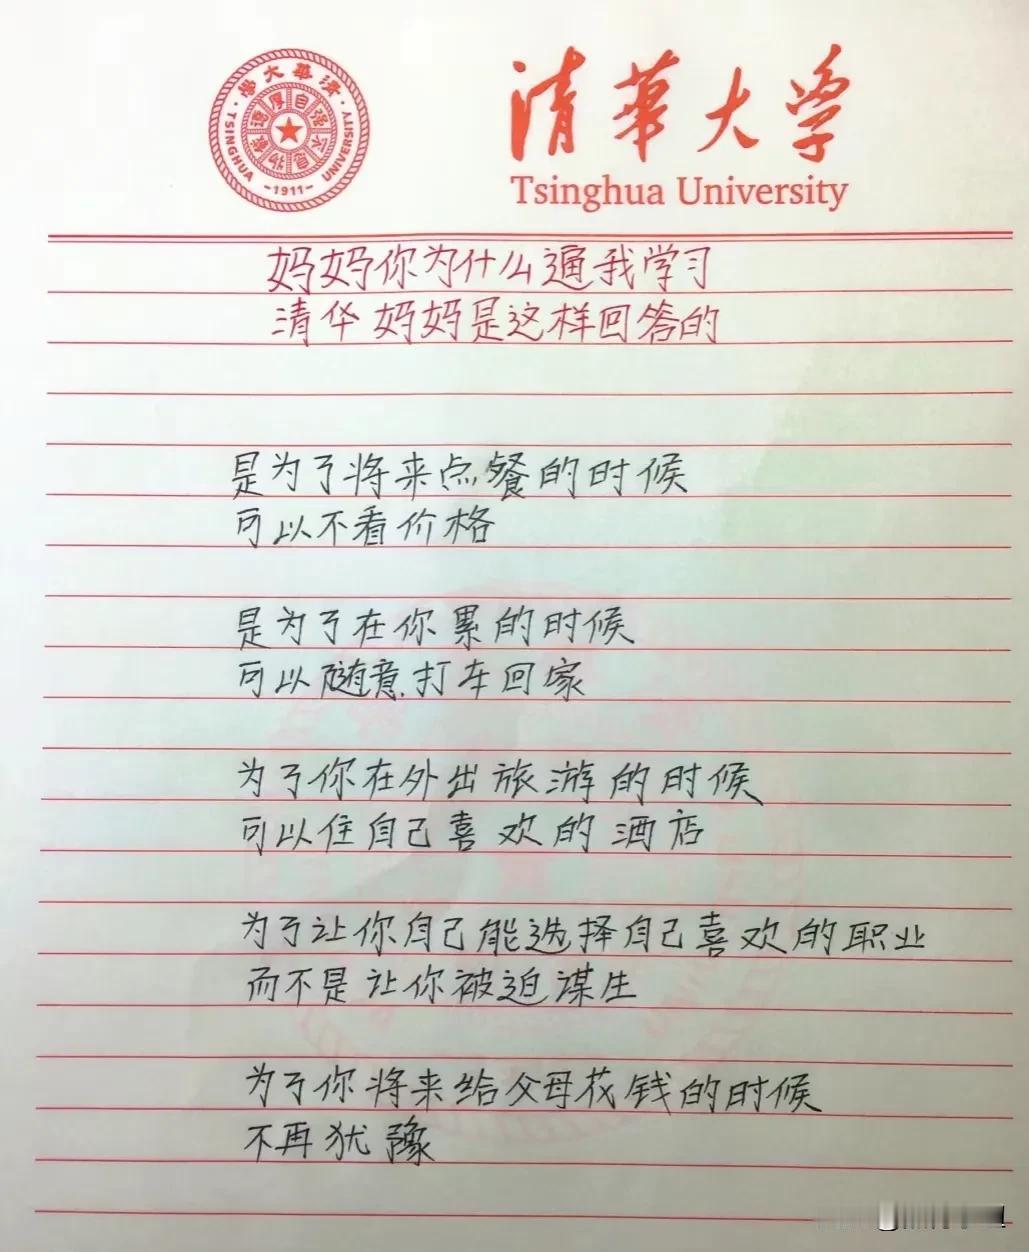 清華大學
TSINGHUA UNIVERSITY
自强不息
厚德載物
-1911-
清華大学
Tsinghua University
妈妈你为什么逼我学习
清华妈妈是这样回答的
是为了将来点餐的时候
可以不看价格
是为了在你累的时候
可以随意打车回家
为了你在外出旅游的时候
可以住自己喜欢的酒店
为了让你自己能选择自己喜欢的职业
而不是让你被迫谋生
为了你将来给父母花钱的时候
不再犹豫